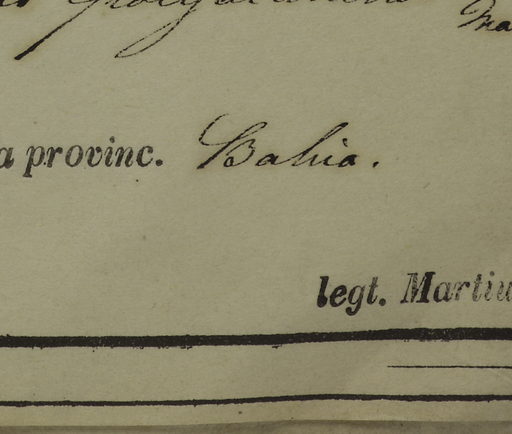 a provinc. Bahia.
legt. Martiu